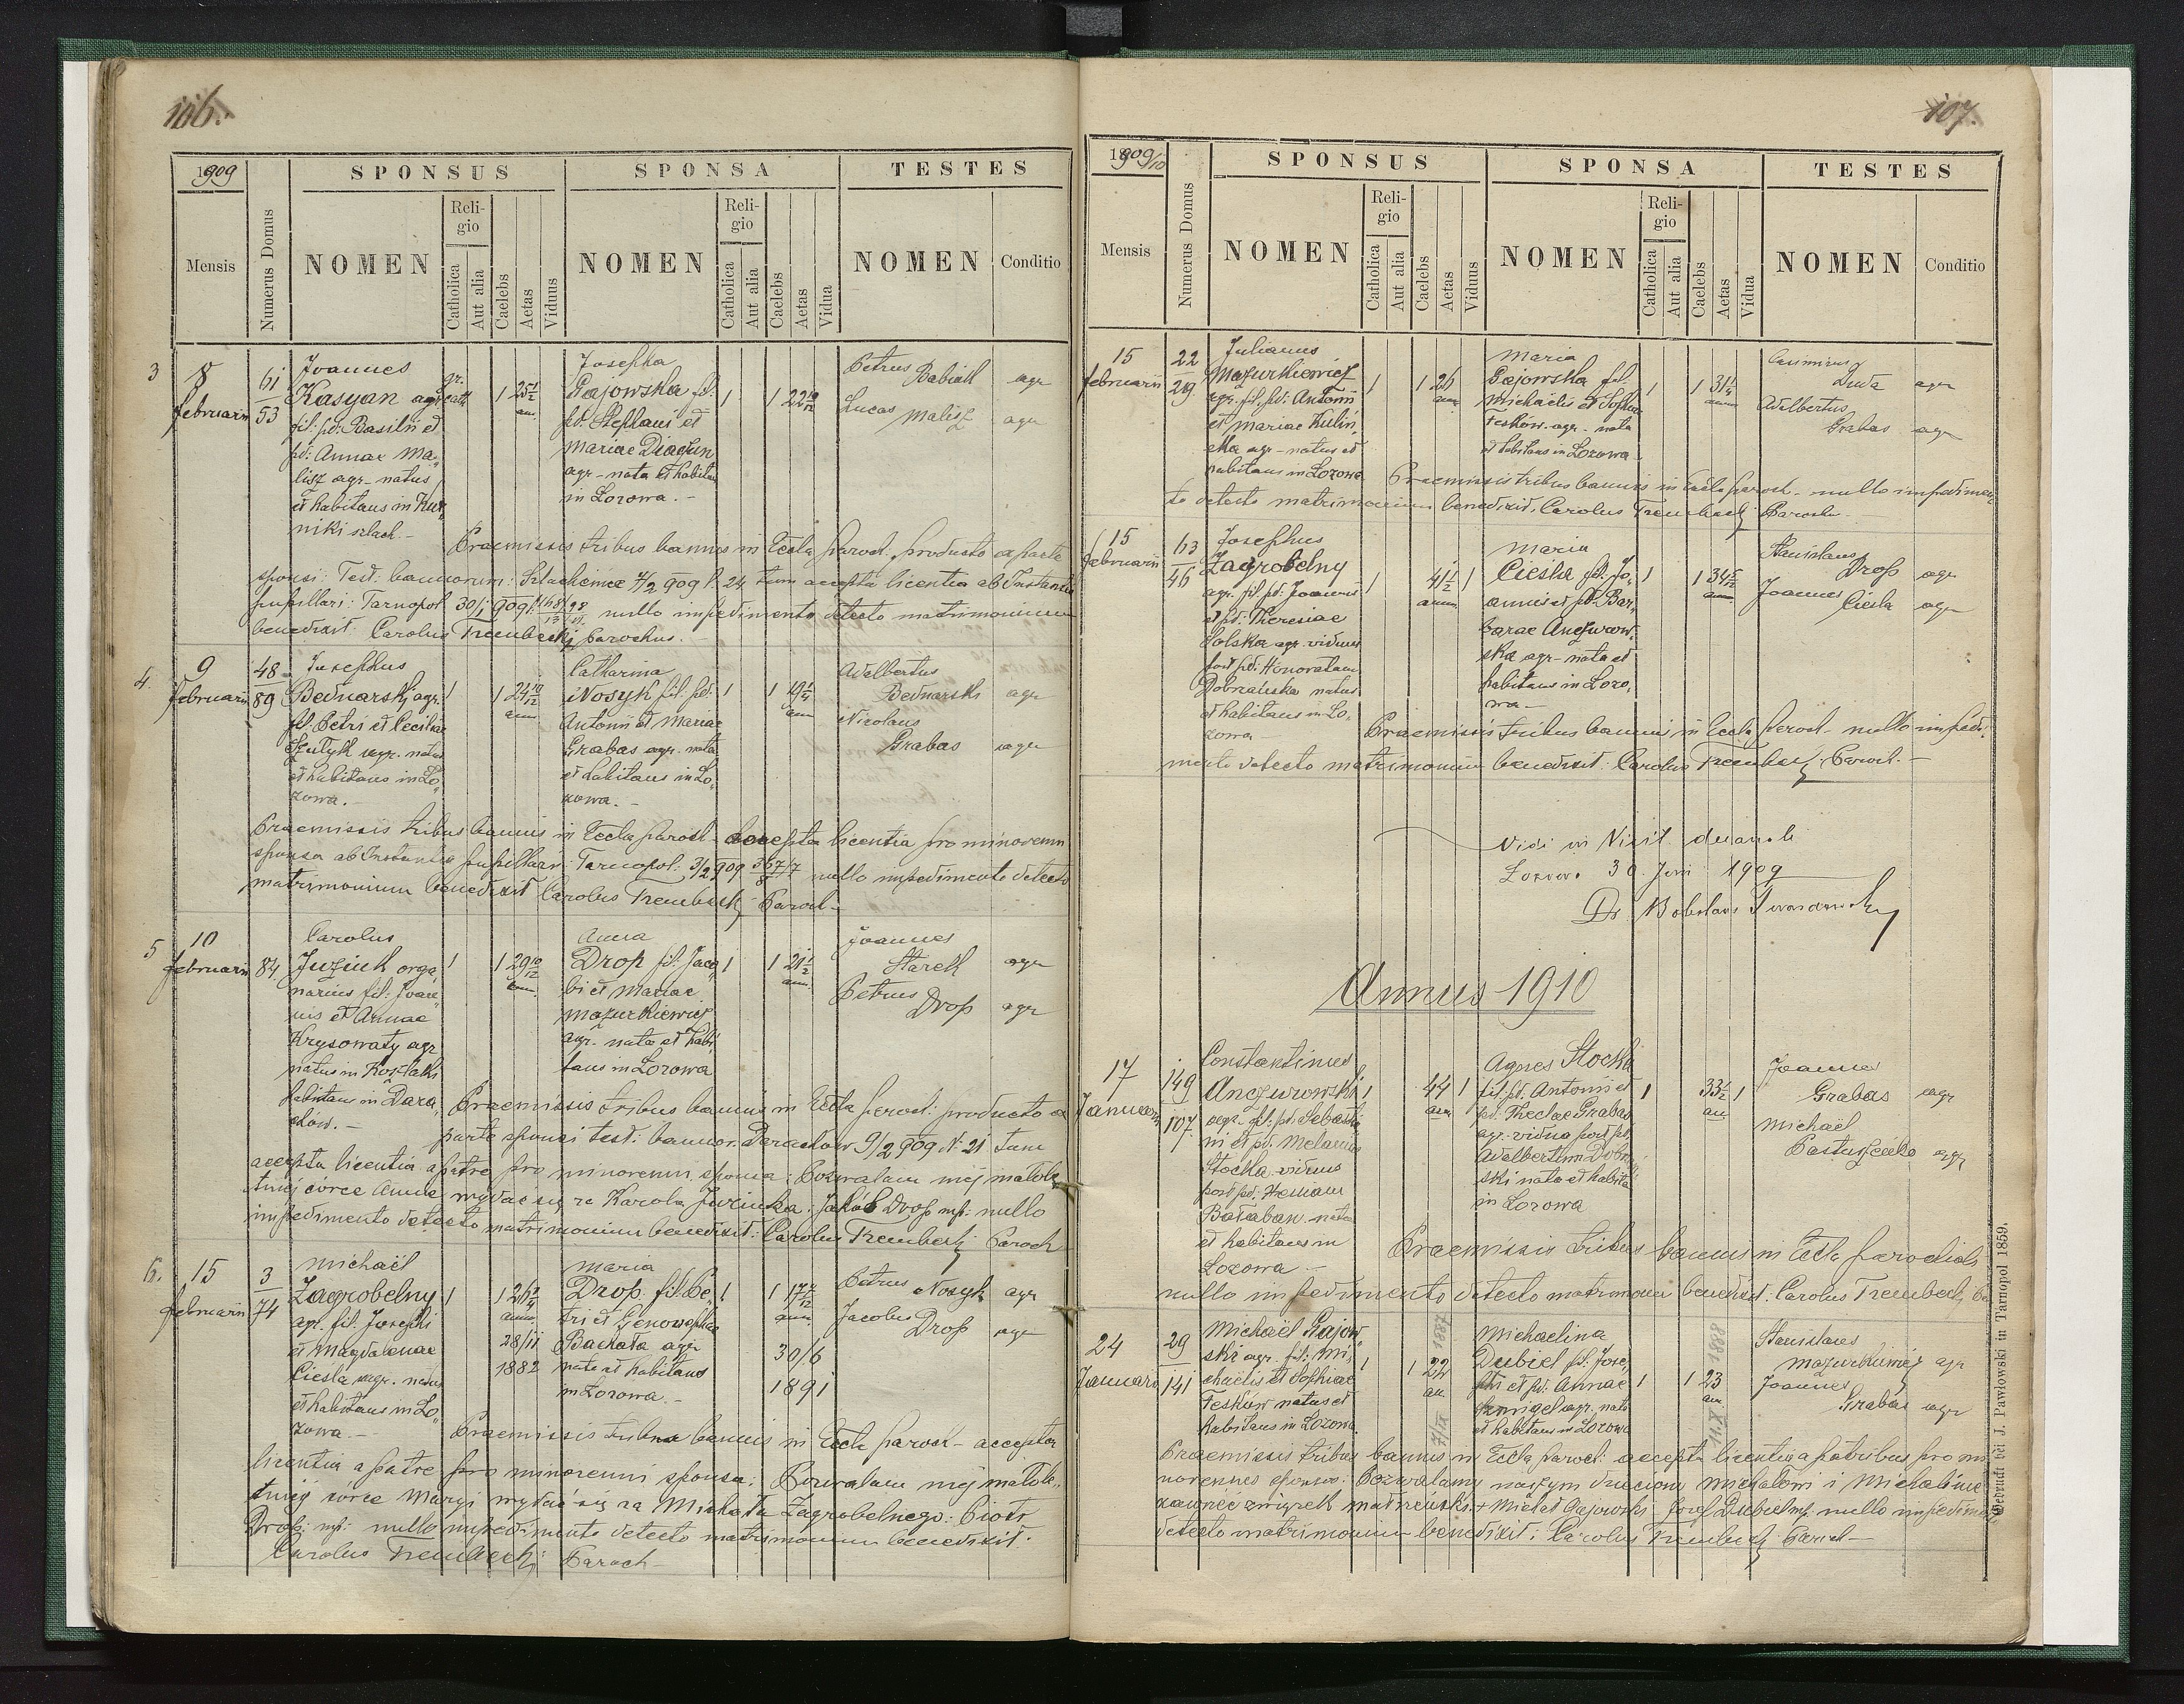 106.
1909
SPONSUS
SPONSA
TESTES
Mensis
Numerus Domus
NOMEN
Religio
Catholica
Aut alia
Caelebs
Aetas
Viduus
NOMEN
Religio
Catholica
Aut alia
Caelebs
Aetas
Vidua
NOMEN
Conditio
3
8 februarii
61/53
Joannes
Kasyan agr.
fil: pd: Basilii et
pd: Annae Ma„
lisz agr– natus
et habitans in Kur„
niki szlach.–
gr. cath
1 25 1/2 ann.
Josepha
Gajowska fil.
pd. Stephani et
Mariae Diaczun
agr– nata et habitans
in Lozowa.–
1
1 22 10/12
Petrus Babiak agr
Lucas Malisz agr
Praemissis tribus bannis in Eccla paroch. producto a parte
sponsi: Test: bannorum: Szlachcince 4/2 909 l. 24 tum accepta licentia ab Instantia
pupillari: Tarnopol 30/1 909 nullo impedimento detecto matrimonium
benedixit: Carolus Trembecki parochus.–
4.
9 februarii
48/89
Josephus
Bednarski agr.
fil. Petri et Ceciliae
Szulyk agr. natus
et habitans in Lo„
zowa.–
1
1 24 10/12 ann
Catharina
Nosyk fil. pd:
Antonii et Mariae
Grabas agr. nata
et habitans in Lo„
zowa.–
1
1 19 1/4 ann
Adalbertus
Bednarski agr
Nicolaus
Grabas agr
Praemissis tribus bannis in Eccla paroch– accepta licentia pro minorenni
sponsa ab Instantia pupillari: Tarnopol: 3/2 909 nullo impedimento detecto
matrimonium benedixit Carolus Trembecki Paroch–
5
10 februarii
84
Carolus
Juziuk orga„
narius fil: Joan„
nis et Annae
Krysowaty agr
natus in
habitans in Dara„
chów.–
1
1 29 10/12 ann.
Anna
Drop fil. Jaco„
bi et Mariae
Mazurkiewicz
agr– nata et habi„
tans in Lozowa
1
1 21 1/2 ann.
Joannes
Starek agr
Petrus
Drop agr
Praemissis tribus bannis in Eccla paroch: producto a
parte sponsi test: bannor. Darachów 9/2 909 N– 21 tum
accepta licentia a patre pro minorenni sponsa: Pozwalam mej małole„
tniej córce Annie wydać się za Karola Juziuka: Jakób Drop mp: nullo
impedimento detecto matrimonium benedixit: Carolus Trembecki Paroch
6.
15 februarii
3/74
Michaël
Zagrobelny
agr. fil. Josephi
et Magdalenae
Cieśla agr. natus
et habitans in Lo„
zowa.–
1
1 26 1/4 ann.
28/11
1882
Maria
Drop. fil. Pe„
tri et Genowephae
Bachała agr
nata et habitans
in Lozowa.–
1
1 17 7/12 ann.
30/6
1891
Petrus Nosyk agr
Jacobus
Drop agr
Praemissis tribus bannis in Eccla paroch– accepta
licentia a patre pro minorenni sponsa: Pozwalam mej małole„
tniej córce Maryi wydać się za Michała Zagrobelnego: Piotr
Drop: mp: nullo impedimento detecto matrimonium benedixit:
Carolus Trembecki Paroch–
107.
1909/10
SPONSUS
SPONSA
TESTES
Mensis
Numerus Domus
NOMEN
Religio
Catholica
Aut alia
Caelebs
Aetas
Viduus
NOMEN
Religio
Catholica
Aut alia
Caelebs
Aetas
Vidua
NOMEN
Conditio
15 februarii
22/219
Julianus
Mazurkiewicz
agr. fil. pd: Antonii
et Mariae Kulin„
ska agr– natus et
habitans in Lozowa
1
1 26 ann
Maria
Gajowska fil.
Michaelis et Sophiae
Feskow. agr– nata
et habitans in Lozowa–
1
1 31 1/4 ann
Casimirus
Duda agr
Adalbertus
Grabas agr
Praemissis tribus bannis in Eccla paroch– nullo impedimen„
to detecto matrimonium benedixit: Carolus Trembecki Paroch–
15 februarii
63/46
Josephus
Zagrobelny
agr. fil pd: Joannis
et pd: Theresiae
Solska agr. viduus
post pd: Honoratam
Dobrzańska natus
et habitans in Lo„
zowa
1
41 1/2 ann. 1
Maria
Cieśla fil. Jo„
annis et pd. Bar„
barae Anczurow„
ska agr– nata et
habitans in Lozo„
wa–
1
1 34 5/12 ann.
Stanislaus
Drop agr
Joannes
Cieśla agr
Praemissis tribus bannis in Eccla paroch– nullo impedi„
mento detecto matrimonium benedixit: Carolus Trembecki Paroch.–
Vidi in Visit. decanali
Lozowa 30. Juni 1909
Dr. Boleslaus
Annus 1910
17 Januarii
149/107
Constantinus
Anczurowski
agr. fil. pd. Sebastia„
ni et pd. Melaniae
Stocka viduus
post pd.
Bałaban– natus
et habitans in
Lozowa–
1
44 ann 1
Agnes Stocka
fil. pd. Antonii et
pd. Theclae Grabas
agr. vidua post pd.
Adalbertum
ski nata et habita
in Lozowa
1
33 1/2 an. 1
Joannes
Grabas agr
Michaël
Pastuszenko agr
Praemissis tribus bannis in Eccla parochiali
nullo impedimento detecto matrimonium benedixit: Carolus Trembecki
24 Januarii
29/141
Michaël Gajow„
ski agr. fil: Mi„
chaëlis et Sophiae
Feskow natus et
habitans in Lozowa
1
1 22 an
1887
Michaelina
Dubiel fil. Jose„
phi et pd. Annae
agr. nata
et habitans in Lozowa
1
1 23 an
11.X 1888
Stanislaus
Mazurkiewicz agr
Joannes
Grabas agr
Praemissis tribus bannis in Eccla paroch: accepta licentia a patribus pro mi„
norennes sponsos: Pozwalamy naszym dzieciom Michałowi i Michalinie
zawrzeć związek małżeński + Michał Gajowski Josef Dubiel mp: nullo impedimento
detecto matrimonium benedixit: Carolus Trembecki Paroch–
Gedruckt bei J. Pawłowski in Tarnopol 1859.